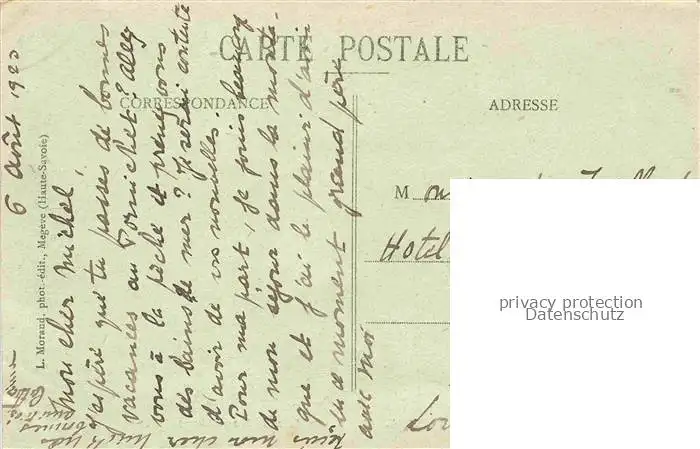 CARTE POSTALE
CORRESPONDANCE
ADRESSE
L. Morand, phot.-édit., Megève (Haute-Savoie)
6 Août 1920
Mon cher Michel
J'espère que tu passes de bonnes
vacances au Pornichet? Allez
vous à la pêche et prenez vous
des bains de mer? Je serai contente
d'avoir de vos nouvelles.
Pour ma part, je jouis beaucoup
de mon séjour dans la monta-
gne et j'ai le plaisir d'avoir
en ce moment grand père
avec moi
mon cher
M
Hotel
privacy protection
Datenschutz